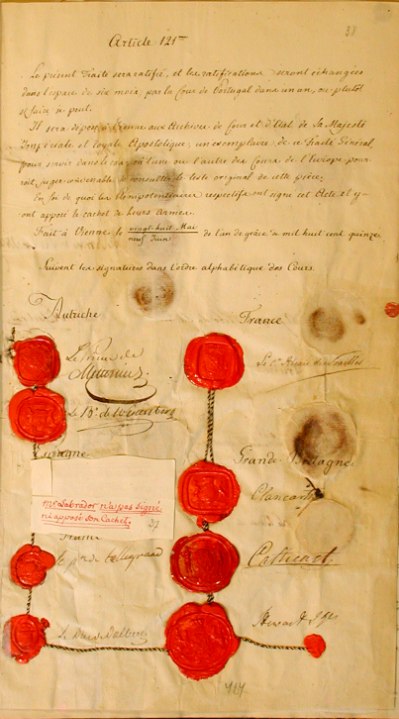 38
Article 121me
Le présent Traité sera ratifié, et les ratifications seront échangées
dans l'espace de six mois, par la Cour de Portugal dans un an, ou plutôt
si faire se peut.
Il sera déposé à Vienne aux Archives de Cour et d'Etat de Sa Majesté
Impériale et Royale Apostolique, un exemplaire de ce Traité Général,
pour servir dans le cas où l'une ou l'autre des Cours de l'Europe pour-
roit juger convenable de consulter le texte original de cette pièce.
En foi de quoi les Plénipotentiaires respectifs ont signé cet Acte, et y
ont apposé le cachet de leurs Armes.
Fait à Vienne le vingt-huit Mai
neuf Juin de l'an de grâce mil huit cent quinze
Suivent les signatures dans l'ordre alphabétique des Cours.
Autriche
France
Le Prince de
Espagne
Grande Bretagne
Clancarty
Mr Labrador n'a pas signé
ni apposé son Cachet.
37
France
Le
Le Duc Dalberg
Stewart